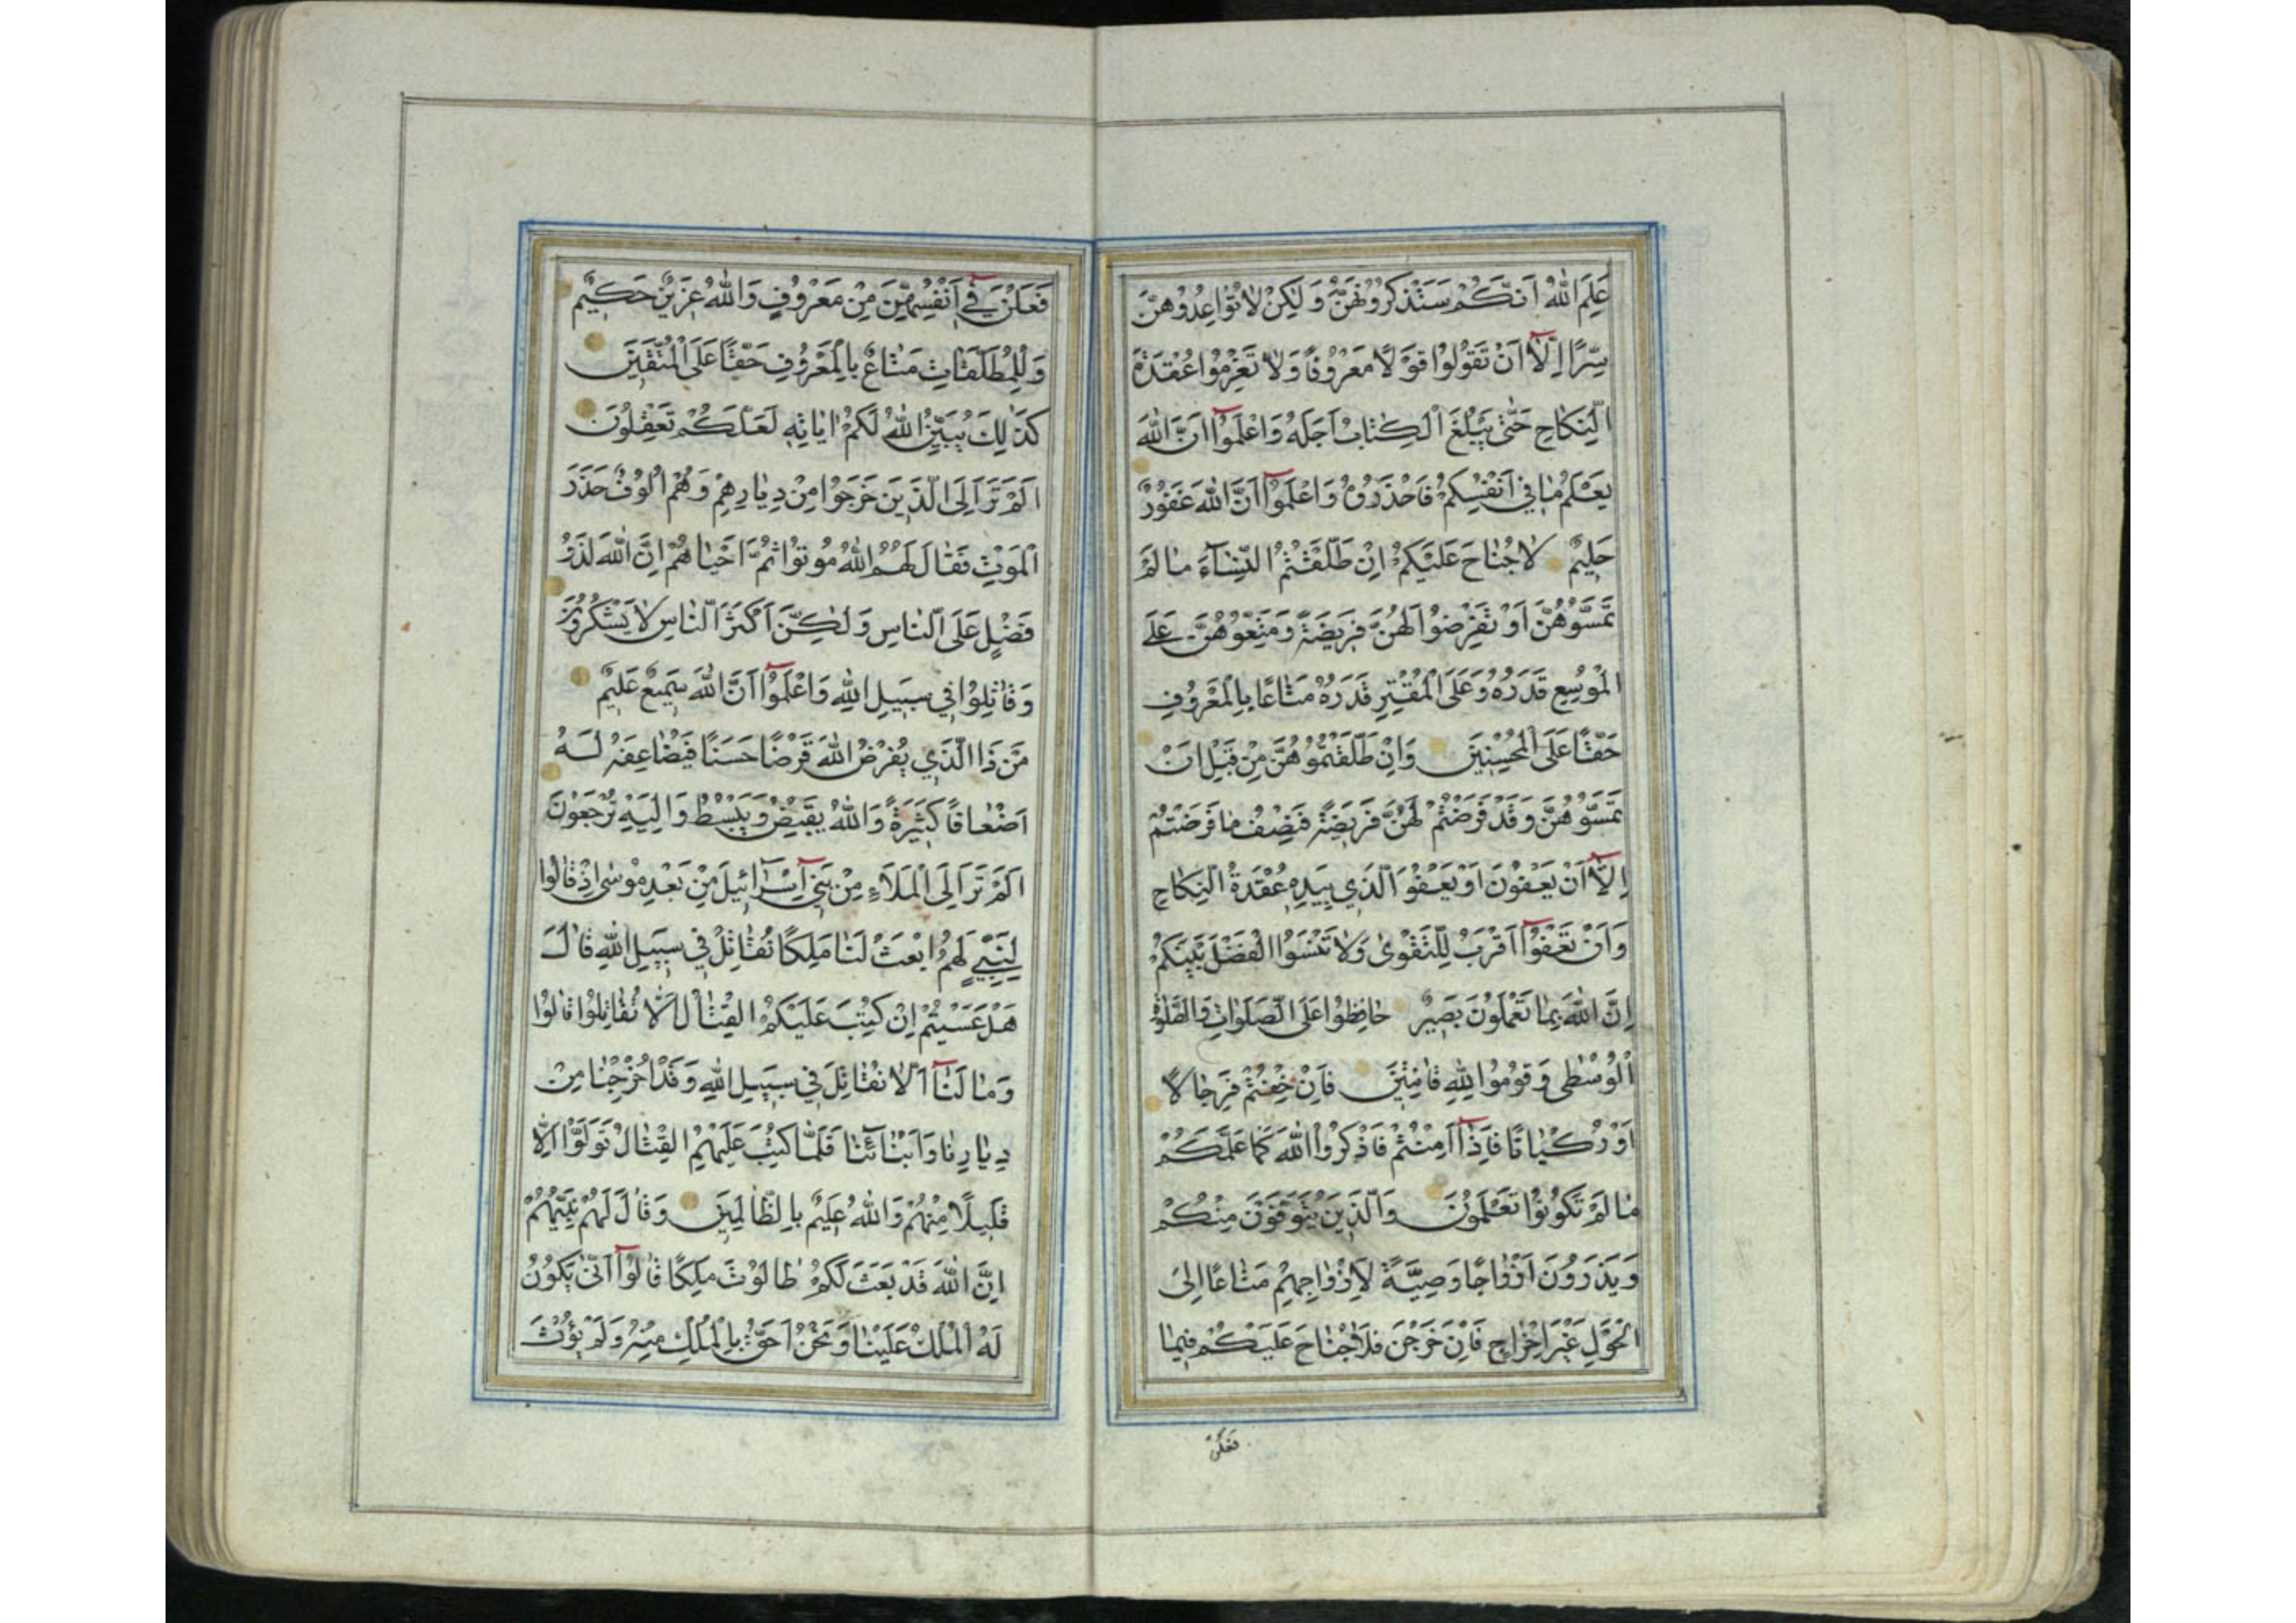 عَلِمَ اللهُ اَنَّكُمْ سَتَذْكُرُونَهُنَّ وَلٰكِنْ لاٰ تُوٰاعِدُوهُنَّ
سِرًّا اِلَّاۤ اَنْ تَقُولُوا قَوْلًا مَعْرُوفًا وَلاٰ تَعْزِمُوا عُقْدَةَ
النِّكٰاحِ حَتّٰى يَبْلُغَ الْكِتٰابُ اَجَلَهُ وَاعْلَمُوۤا اَنَّ اللهَ
يَعْلَمُ مٰا فِي اَنْفُسِكُمْ فَاحْذَرُوهُ وَاعْلَمُوۤا اَنَّ اللهَ غَفُورٌ
حَلِيمٌ لاٰ جُنٰاحَ عَلَيْكُمْ اِنْ طَلَّقْتُمُ النِّسٰۤاءَ مٰا لَمْ
تَمَسُّوهُنَّ اَوْ تَفْرِضُوا لَهُنَّ فَرِيضَةً وَمَتِّعُوهُنَّ عَلَى
الْمُوسِعِ قَدَرُهُ وَعَلَى الْمُقْتِرِ قَدَرُهُ مَتٰاعًا بِالْمَعْرُوفِ
حَقًّا عَلَى الْمُحْسِنِينَ وَاِنْ طَلَّقْتُمُوهُنَّ مِنْ قَبْلِ اَنْ
تَمَسُّوهُنَّ وَقَدْ فَرَضْتُمْ لَهُنَّ فَرِيضَةً فَنِصْفُ مٰا فَرَضْتُمْ
اِلَّاۤ اَنْ يَعْفُونَ اَوْ يَعْفُوَ الَّذِي بِيَدِهِ عُقْدَةُ النِّكٰاحِ
وَاَنْ تَعْفُوۤا اَقْرَبُ لِلتَّقْوىٰ وَلاٰ تَنْسَوُا الْفَضْلَ بَيْنَكُمْ
اِنَّ اللهَ بِمٰا تَعْمَلُونَ بَصِيرٌ حٰافِظُوا عَلَى الصَّلَوٰاتِ وَالصَّلٰوةِ
الْوُسْطٰى وَقُومُوا لِلّٰهِ قٰانِتِينَ فَاِنْ خِفْتُمْ فَرِجٰالًا
اَوْ رُكْبٰانًا فَاِذٰاۤ اَمِنْتُمْ فَاذْكُرُوا اللهَ كَمٰا عَلَّمَكُمْ
مٰا لَمْ تَكُونُوا تَعْلَمُونَ وَالَّذِينَ يُتَوَفَّوْنَ مِنْكُمْ
وَيَذَرُونَ اَزْوٰاجًا وَصِيَّةً لِاَزْوٰاجِهِمْ مَتٰاعًا اِلَى
الْحَوْلِ غَيْرَ اِخْرٰاجٍ فَاِنْ خَرَجْنَ فَلاٰ جُنٰاحَ عَلَيْكُمْ فِيمٰا
فَعَلْنَ
فَعَلْنَ فِيۤ اَنْفُسِهِنَّ مِنْ مَعْرُوفٍ وَاللهُ عَزِيزٌ حَكِيمٌ
وَلِلْمُطَلَّقٰاتِ مَتٰاعٌ بِالْمَعْرُوفِ حَقًّا عَلَى الْمُتَّقِينَ
كَذٰلِكَ يُبَيِّنُ اللهُ لَكُمْ اٰيٰاتِهِ لَعَلَّكُمْ تَعْقِلُونَ
اَلَمْ تَرَ اِلَى الَّذِينَ خَرَجُوا مِنْ دِيٰارِهِمْ وَهُمْ اُلُوفٌ حَذَرَ
الْمَوْتِ فَقٰالَ لَهُمُ اللهُ مُوتُوا ثُمَّ اَحْيٰاهُمْ اِنَّ اللهَ لَذُو
فَضْلٍ عَلَى النّٰاسِ وَلٰكِنَّ اَكْثَرَ النّٰاسِ لاٰ يَشْكُرُونَ
وَقٰاتِلُوا فِي سَبِيلِ اللهِ وَاعْلَمُوۤا اَنَّ اللهَ سَمِيعٌ عَلِيمٌ
مَنْ ذَا الَّذِي يُقْرِضُ اللهَ قَرْضًا حَسَنًا فَيُضٰاعِفَهُ لَهُ
اَضْعٰافًا كَثِيرَةً وَاللهُ يَقْبِضُ وَيَبْسُطُ وَاِلَيْهِ تُرْجَعُونَ
اَلَمْ تَرَ اِلَى الْمَلَاءِ مِنْ بَنِيۤ اِسْرٰۤائِيلَ مِنْ بَعْدِ مُوسٰى اِذْ قٰالُوا
لِنَبِيٍّ لَهُمُ ابْعَثْ لَنٰا مَلِكًا نُقٰاتِلْ فِي سَبِيلِ اللهِ قٰالَ
هَلْ عَسَيْتُمْ اِنْ كُتِبَ عَلَيْكُمُ الْقِتٰالُ اَلَّا تُقٰاتِلُوا قٰالُوا
وَمٰا لَنٰاۤ اَلَّا نُقٰاتِلَ فِي سَبِيلِ اللهِ وَقَدْ اُخْرِجْنٰا مِنْ
دِيٰارِنٰا وَاَبْنٰائِنٰا فَلَمّٰا كُتِبَ عَلَيْهِمُ الْقِتٰالُ تَوَلَّوْا اِلَّا
قَلِيلًا مِنْهُمْ وَاللهُ عَلِيمٌ بِالظّٰالِمِينَ وَقٰالَ لَهُمْ نَبِيُّهُمْ
اِنَّ اللهَ قَدْ بَعَثَ لَكُمْ طٰالُوتَ مَلِكًا قٰالُوۤا اَنّٰى يَكُونُ
لَهُ الْمُلْكُ عَلَيْنٰا وَنَحْنُ اَحَقُّ بِالْمُلْكِ مِنْهُ وَلَمْ يُؤْتَ